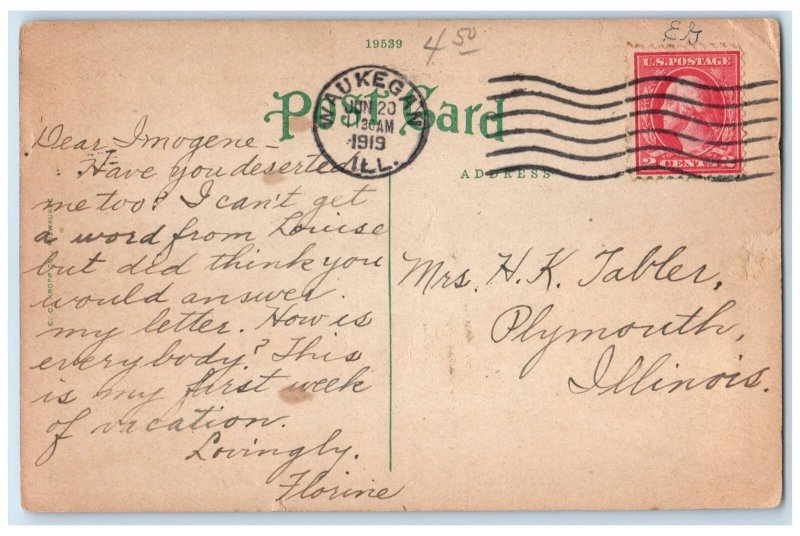 19539
4 50
EG
Post Card
WAUKEGAN
JUN 20
1130AM
1919
ILL.
U.S. POSTAGE
2 CENTS 2
ADDRESS
Dear Imogene—
Have you deserted
me too? I can't get
a word from Louise
but did think you
would answer
my letter. How is
everybody? This
is my first week
of vacation.
Lovingly.
Florine
Mrs. H. K. Tabler,
Plymouth,
Illinois.
E. C. KROPP CO. MILWAUKEE